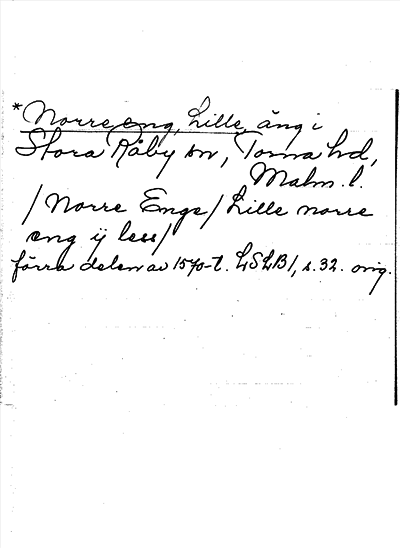 *Norre eng, Lille, äng i
Stora Råby sn, Torna hd,
Malm. l.
/Norre Enge/Lille norre
eng ij less/
förra delen av 1570-t. LSLB1, s. 32. orig.